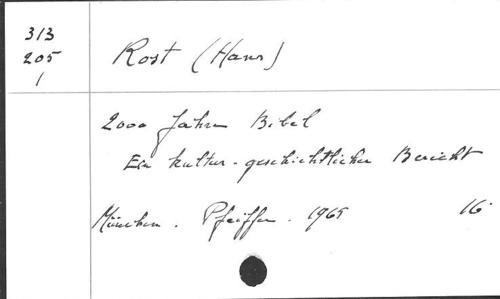 313
205
1
Rost (Hans)
2000 Jahre Bibel
Ein kultur-geschichtlicher Bericht
München. Pfeiffer. 1965 16°